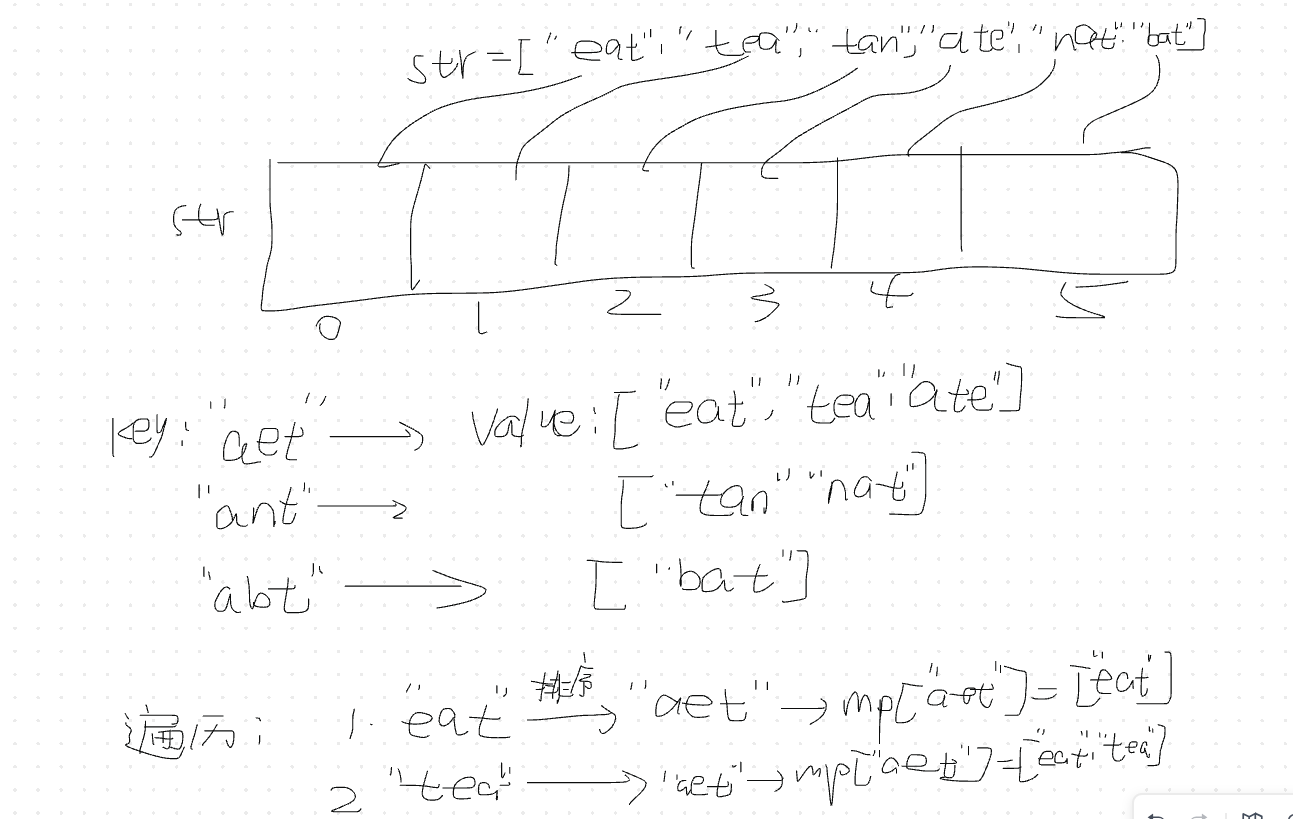 str=["eat","tea","tan","ate","nat""bat"]
str
0 1 2 3 4 5
key: "aet" → value: ["eat","tea","ate"]
"ant" → ["tan" "nat"]
"abt" → ["bat"]
遍历: 1. "eat" 排序→ "aet" → mp["aet"]=["eat"]
2 "tea" → "aet" → mp["aet"]=["eat","tea"]